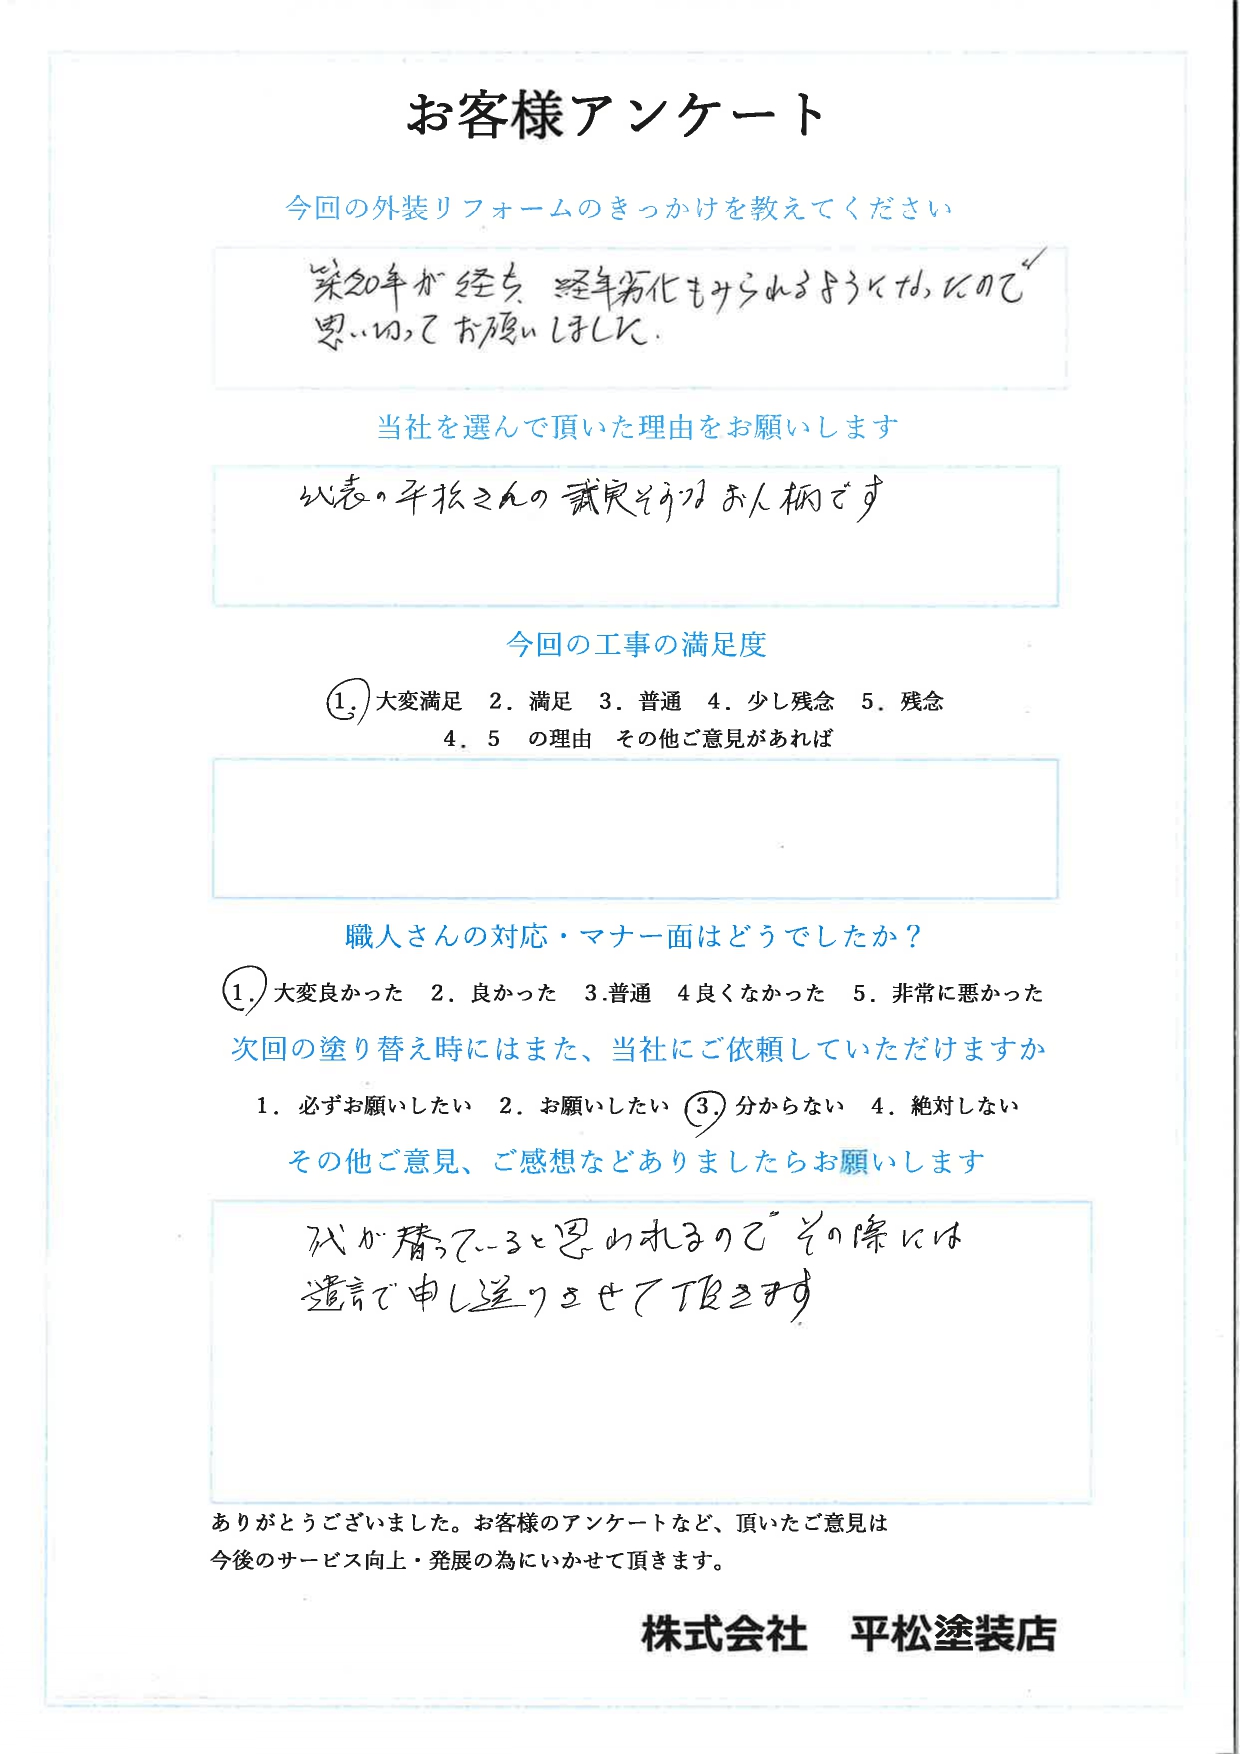 お客様アンケート
今回の外装リフォームのきっかけを教えてください
築20年が経ち、経年劣化もみられるようになったので
思い切ってお願いしました.
当社を選んで頂いた理由をお願いします
代表の平松さんの誠実そうなお人柄です
今回の工事の満足度
1. 大変満足 2. 満足 3. 普通 4. 少し残念 5. 残念
4. 5 の理由 その他ご意見があれば
職人さんの対応・マナー面はどうでしたか？
1. 大変良かった 2. 良かった 3.普通 4良くなかった 5. 非常に悪かった
次回の塗り替え時にはまた、当社にご依頼していただけますか
1. 必ずお願いしたい 2. お願いしたい 3. 分からない 4. 絶対しない
その他ご意見、ご感想などありましたらお願いします
代が替っていると思われるのでその際には
遺言で申し送りさせて頂きます
ありがとうございました。お客様のアンケートなど、頂いたご意見は
今後のサービス向上・発展の為にいかせて頂きます。
株式会社 平松塗装店